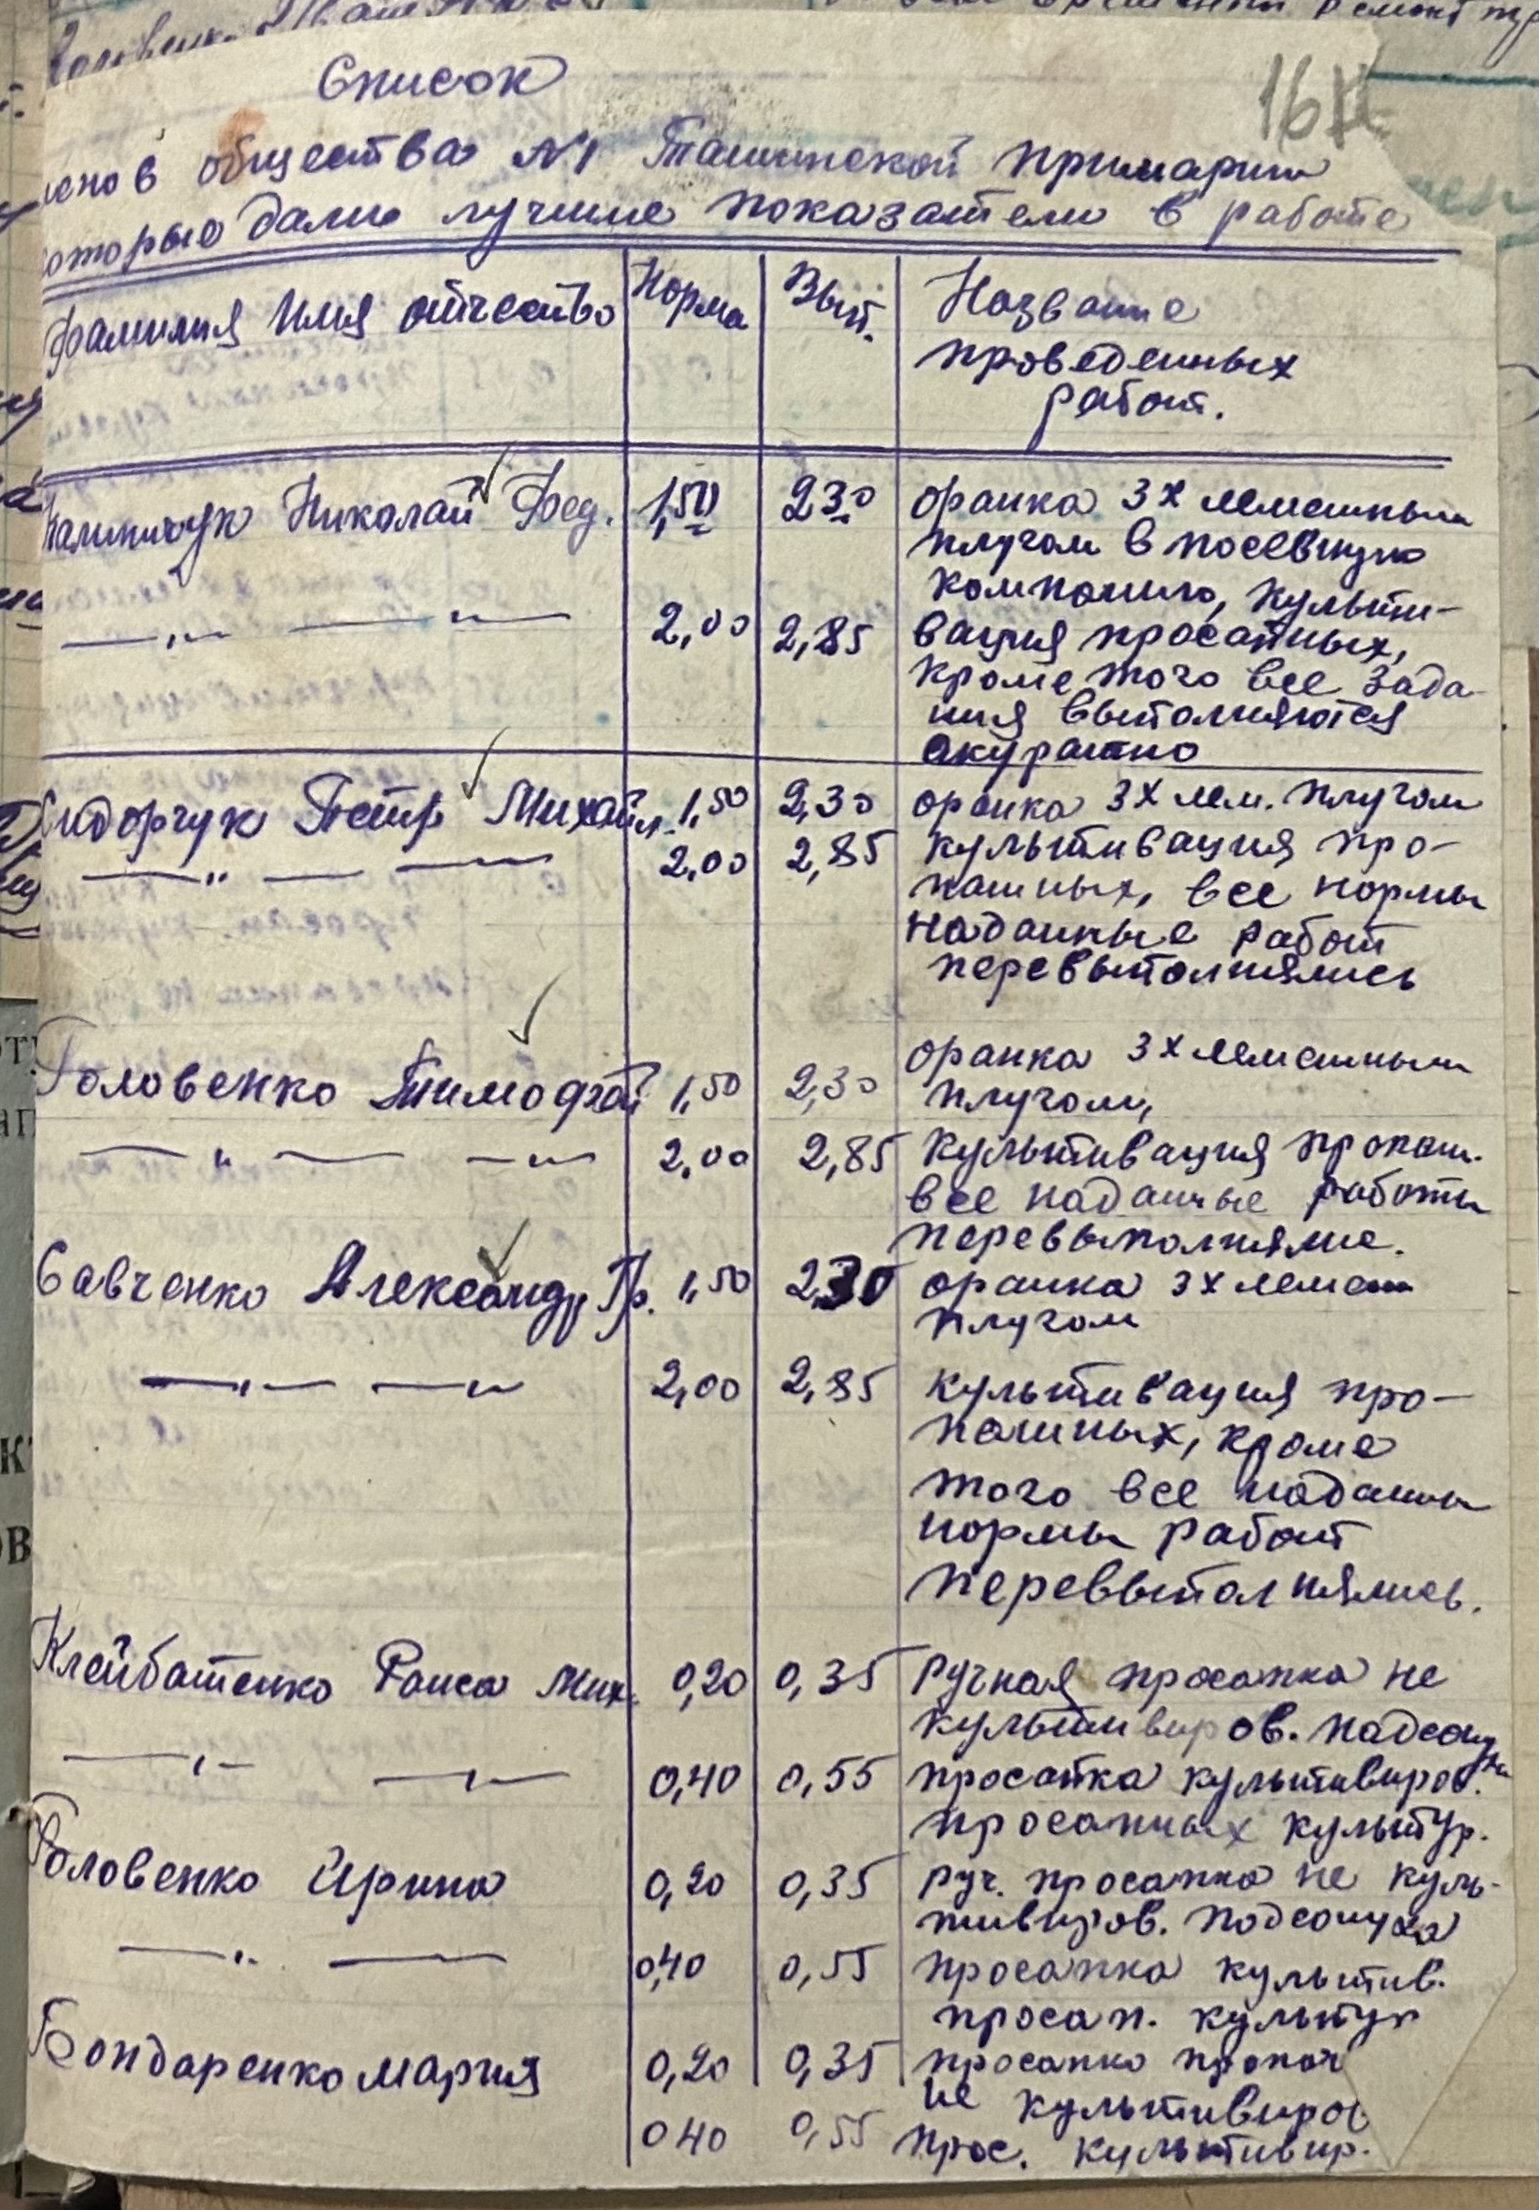 Список
16
ленов общества №1 Ташинской примарии
которые дали лучшие показатели в работе
Фамилия Имя отчество Норма Вып. Название
проведенных
работ.
Калинчук Николай Фед. 1,50 2,30 оранка 3х лемешным
плугом в посевную
компонию, культи-
— „ — — „ — 2,00 2,85 вация просапных,
кроме того все зада-
ния выполняются
акуратно
Сидорчук Петр Михайл. 1,50 2,30 оранка 3х лем. плугом
— „ — — 2,00 2,85 культивация про-
пашных, все нормы
наданные работ
перевыполнялись
Головенко Тимофей 1,50 2,30 оранка 3х лемешным
плугом,
— „ — — „ — 2,00 2,85 культивация пропаш.
все наданные работы
перевыполняли.
Савченко Александр Гр. 1,50 2,30 оранка 3х лемеш
плугом
— „ — — „ — 2,00 2,85 культивация про-
пашных, кроме
того все наданы
нормы работ
перевыполнялись.
Клейбатенко Раиса Мих. 0,20 0,35 Ручная просапка не
культивиров. подсолнуха
— „ — — „ — 0,40 0,55 просапка культивиров.
просапных культур.
Головенко Ирина 0,20 0,35 руч. просапка не куль-
тивиров. подсолнуха
— „ — — 0,40 0,55 просапка культив.
просап. культур
Бондаренко Мария 0,20 0,35 просапка
не культивиров
0 40 0,55 прос. культивир.